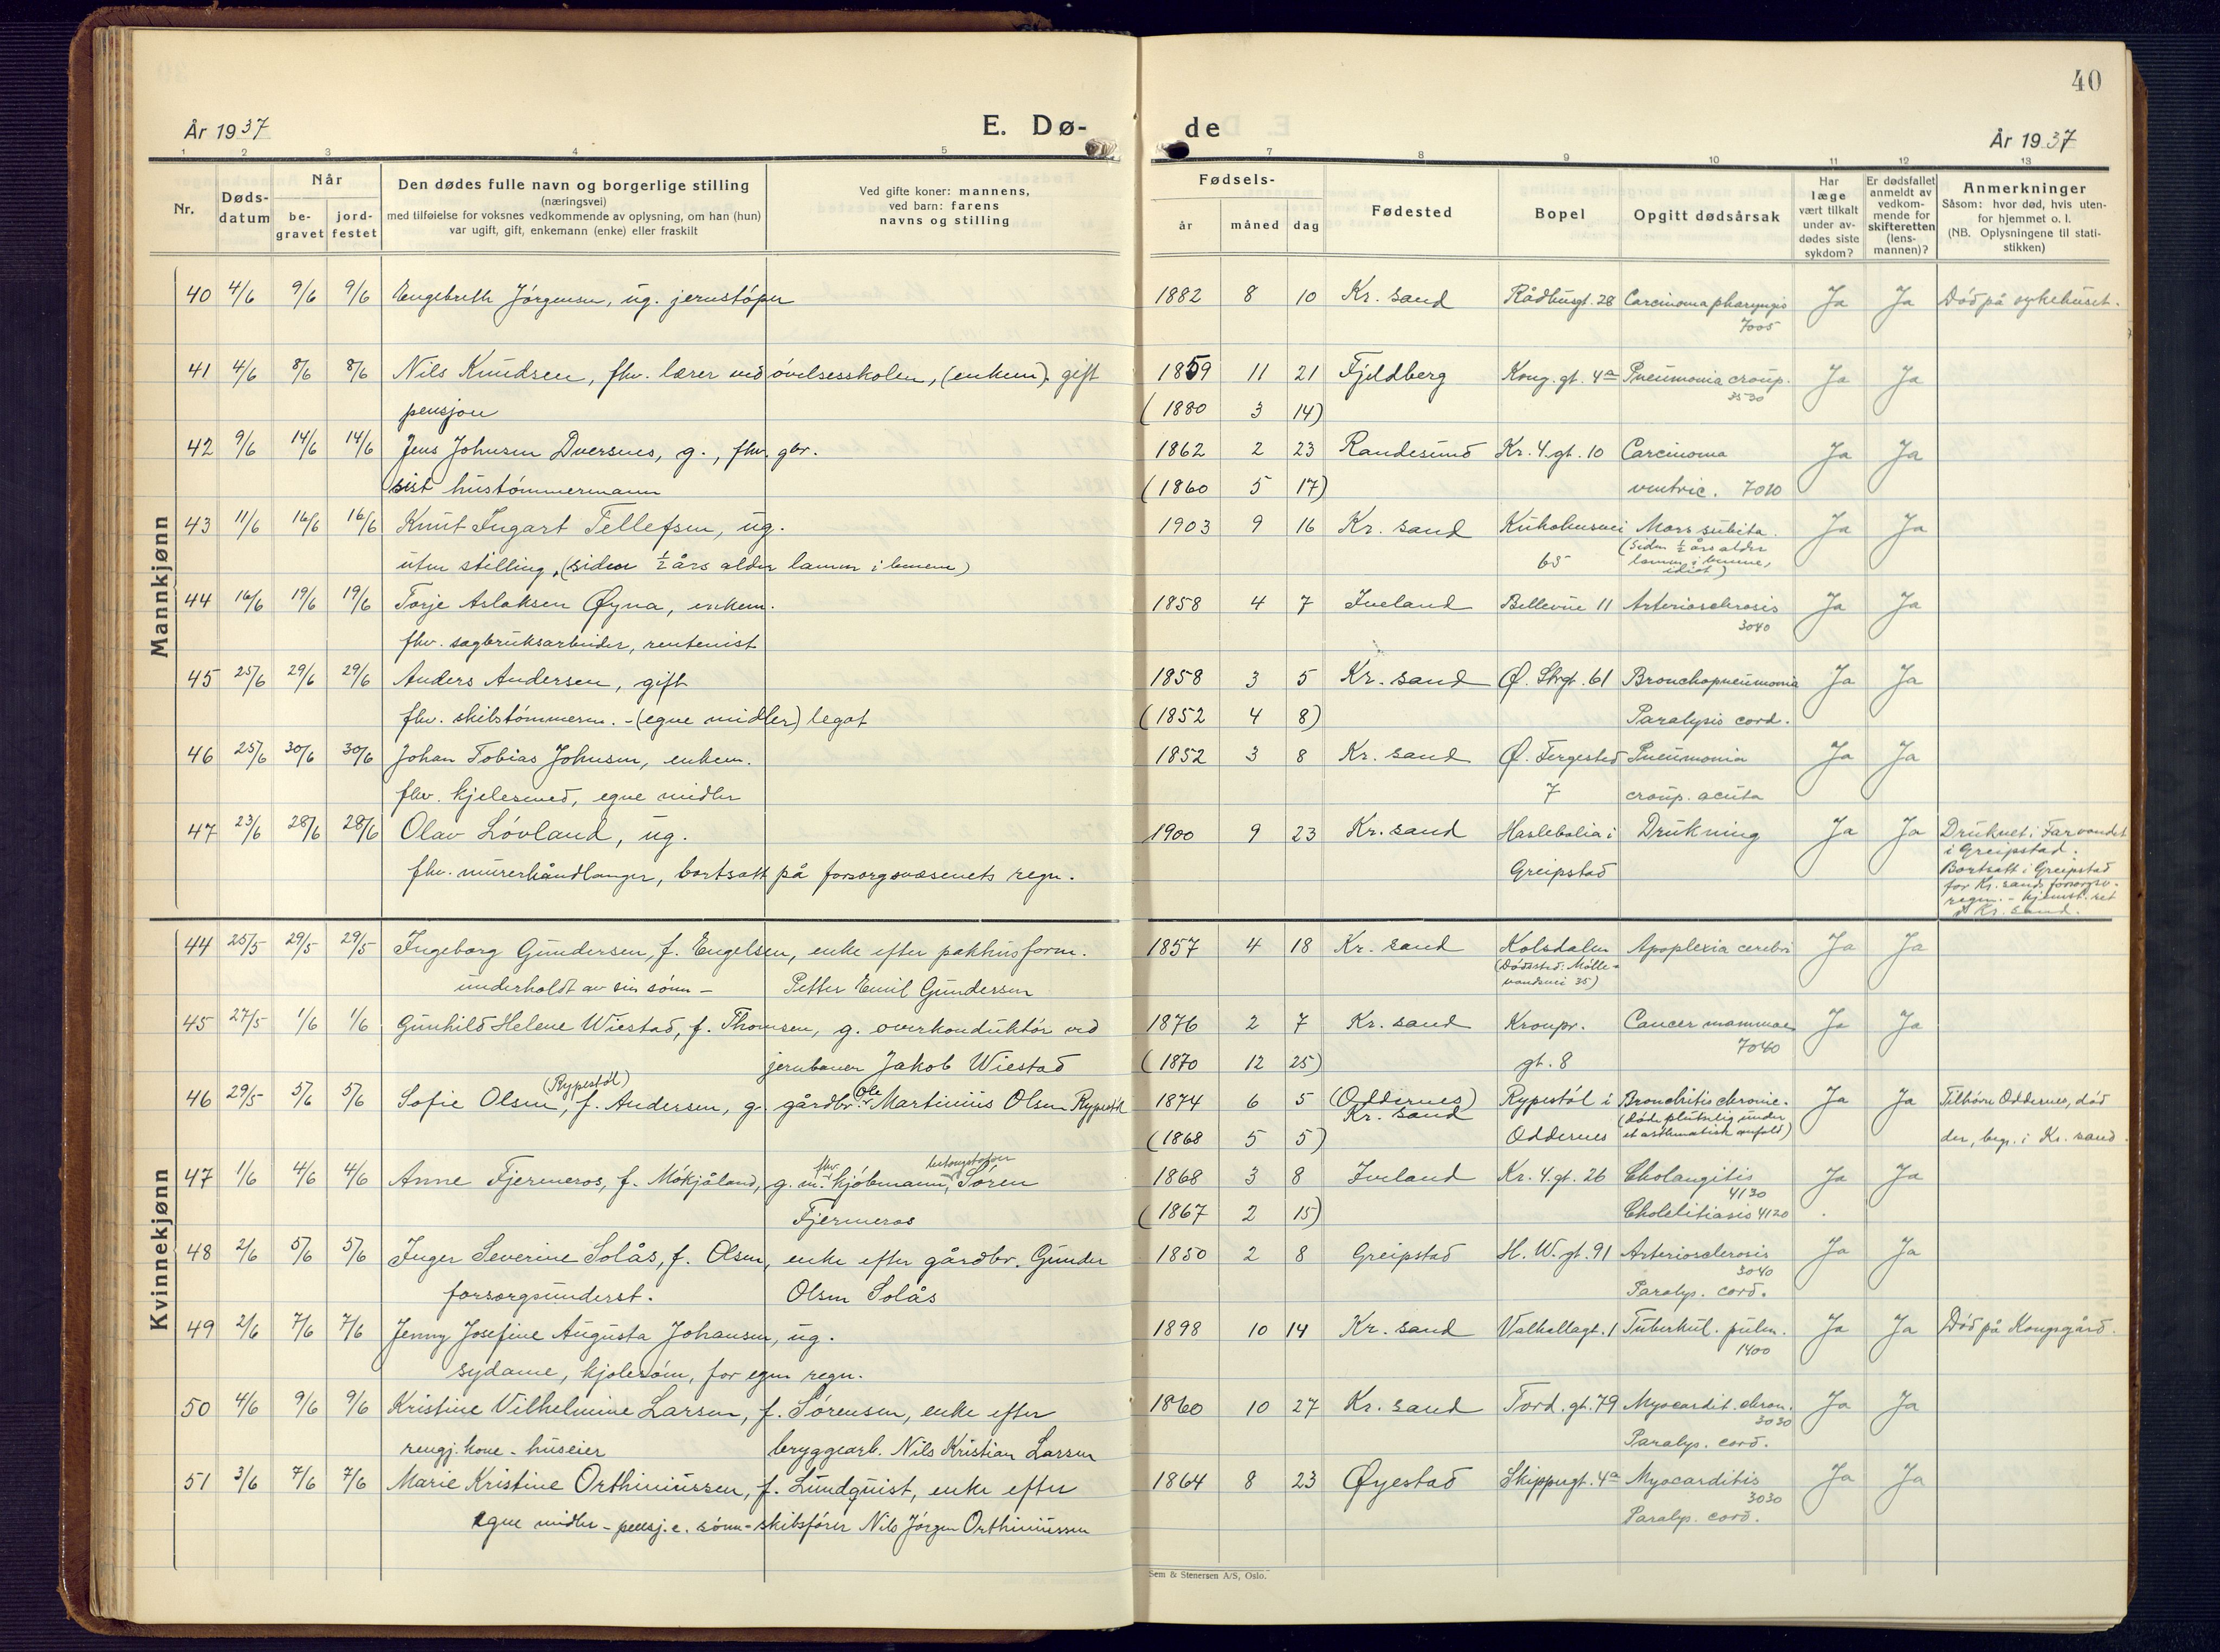 40
År 1937
E. Dø-
de
År 1937
1 2 3 4 5 7 8 9 10 11 12 13
Nr.
Døds-
datum
Når
be-
gravet
jord-
festet
Den dødes fulle navn og borgerlige stilling
(næringsvei)
med tilføielse for voksnes vedkommende av oplysning, om han (hun)
var ugift, gift, enkemann (enke) eller fraskilt
Ved gifte koner: mannens,
ved barn: farens
navns og stilling
Fødsels-
år måned dag
Fødested
Bopel
Opgitt dødsårsak
Har
læge
vært tilkalt
under av-
dødes siste
sykdom?
Er dødsfallet
anmeldt av
vedkom-
mende for
skifteretten
(lens-
mannen)?
Anmerkninger
Såsom: hvor død, hvis uten-
for hjemmet o. l.
(NB. Oplysningene til stati-
stikken)
Mannkjønn
40 4/6 9/6 9/6 Engebreth Jørgensen, ug. jernstøper 1882 8 10 Kr. sand Rådhusgt. 28 Carcinoma pharyngis Ja Ja Død på sykehuset.
7005
41 4/6 8/6 8/6 Nils Knudsen, fhv. lærer ved øvelsesskolen, (enkem). gift 1859 11 21 Fjeldberg Kong. gt. 4a Pneumonia croup. Ja Ja
3530
pensjon (1880 3 14)
42 9/6 14/6 14/6 Jens Johnsen Dversnes, g., fhv. gbr. 1862 2 23 Randesund Kr. 4. gt. 10 Carcinoma Ja Ja
sist hustømmermann (1860 5 17) ventric. 7010
43 11/6 16/6 16/6 Knut Ingart Tellefsen, ug. 1903 9 16 Kr. sand Kuholmsvei Mors subita. Ja Ja
uten stilling, (siden ½ års alder lammen i benene) 65 (siden ½ års alder
lammen i benene,
idiot)
44 16/6 19/6 19/6 Torje Aslaksen Øyna, enkem. 1858 4 7 Iveland Bellevue 11 Arteriosclerosis Ja Ja
3040
fhv. sagbruksarbeider, rentenist
45 25/6 29/6 29/6 Anders Andersen, gift 1858 3 5 Kr. sand Ø. Strgt. 61 Bronchopneumonia Ja Ja
fhv. skibstømmerm. - (egne midler) legat (1852 4 8) Paralysis cord.
46 25/6 30/6 30/6 Johan Tobias Johnsen, enkem. 1852 3 8 Kr. sand Ø. Tergested Pneumonia Ja Ja
fhv. kjelesmed, egne midler 7 croup. acuta
47 23/6 28/6 28/6 Olav Løvland, ug. 1900 9 23 Kr. sand Haslebalia i Drukning Ja Ja Druknet i Farvandet
fhv. murerhåndlanger, bortsatt på forsorgsvæsenets regn. Greipstad i Greipstad.
Bortsatt i Greipstad
for Kr. sands forsorgsv.
regn. - hjemst. ret
i Kr. sand.
Kvinnekjønn
44 25/5 29/5 29/5 Ingeborg Gundersen, f. Engelsen, enke efter pakhusform. 1857 4 18 Kr. sand Kolsdalen Apoplexia cerebri Ja Ja
underholdt av sin sønn - Petter Emil Gundersen (Dødssted: Mølle-
vandsvei 35)
45 27/5 1/6 1/6 Gunhild Helene Wiestad, f. Thomsen, g. overkonduktør ved 1876 2 7 Kr. sand Kronpr. Cancer mammae Ja Ja
7040
jernbanen Jakob Wiestad (1870 12 25) gt. 8
46 29/5 5/6 5/6 Sofie Olsen (Rypestøl), f. Andersen, g. gårdbr. Ole Martinius Olsen Rypestøl 1874 6 5 (Oddernes) Kr. sand Rypestøl i Bronchitis chronic. Ja Ja Tilhører Oddernes, død
(1868 5 5) Oddernes (døde plutselig under
et asthmatisk anfald) der, begr. i Kr. sand.
47 1/6 4/6 4/6 Anne Fjermeros, f. Møkjåland, g. m. fhv. kjøbmann, Søren 1868 3 8 Iveland Kr. 4. gt. 26 Cholangitis Ja Ja
4130
Fjermeros (1867 2 15) Cholelitiasis 4120
48 2/6 5/6 5/6 Inger Severine Solås, f. Olsen, enke efter gårdbr. Gunder 1850 2 8 Greipstad H. W. gt. 91 Arteriosclerosis Ja Ja
3040
forsorgsunderst. Olsen Solås Paralys. cord.
49 2/6 7/6 7/6 Jenny Josefine Augusta Johansen, ug. 1898 10 14 Kr. sand Valhallagt. 1 Tuberkul. pulm. Ja Ja Død på Kongsgård.
1400
sydame, kjolesøm, for egen regn.
50 4/6 9/6 9/6 Kristine Vilhelmine Larsen, f. Sørensen, enke efter 1860 10 27 Kr. sand Tord. gt. 79 Myocardit. chron. Ja Ja
3030
rengj. kone - huseier bryggearb. Nils Kristian Larsen Paralys. cord.
51 3/6 7/6 7/6 Marie Kristine Orthiniussen, f. Lundquist, enke efter 1864 8 23 Øyestad Skippergt. 4a Myocarditis Ja Ja
3030
egne midler - pensj. e. sønn - skibsfører Nils Jørgen Orthiniussen Paralys. cord.
Sem & Stenersen A/S, Oslo.